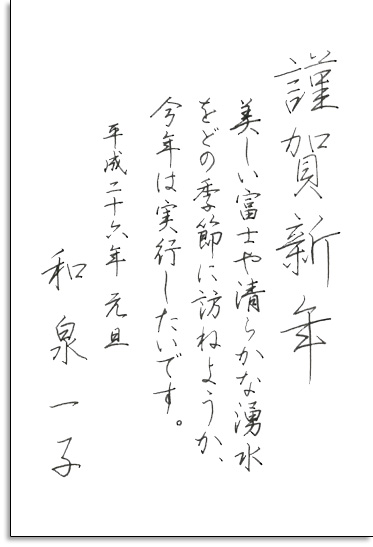 謹賀新年
美しい富士や清らかな湧水
をどの季節に訪ねようか、
今年は実行したいです。
平成二十六年 元旦
和泉一子